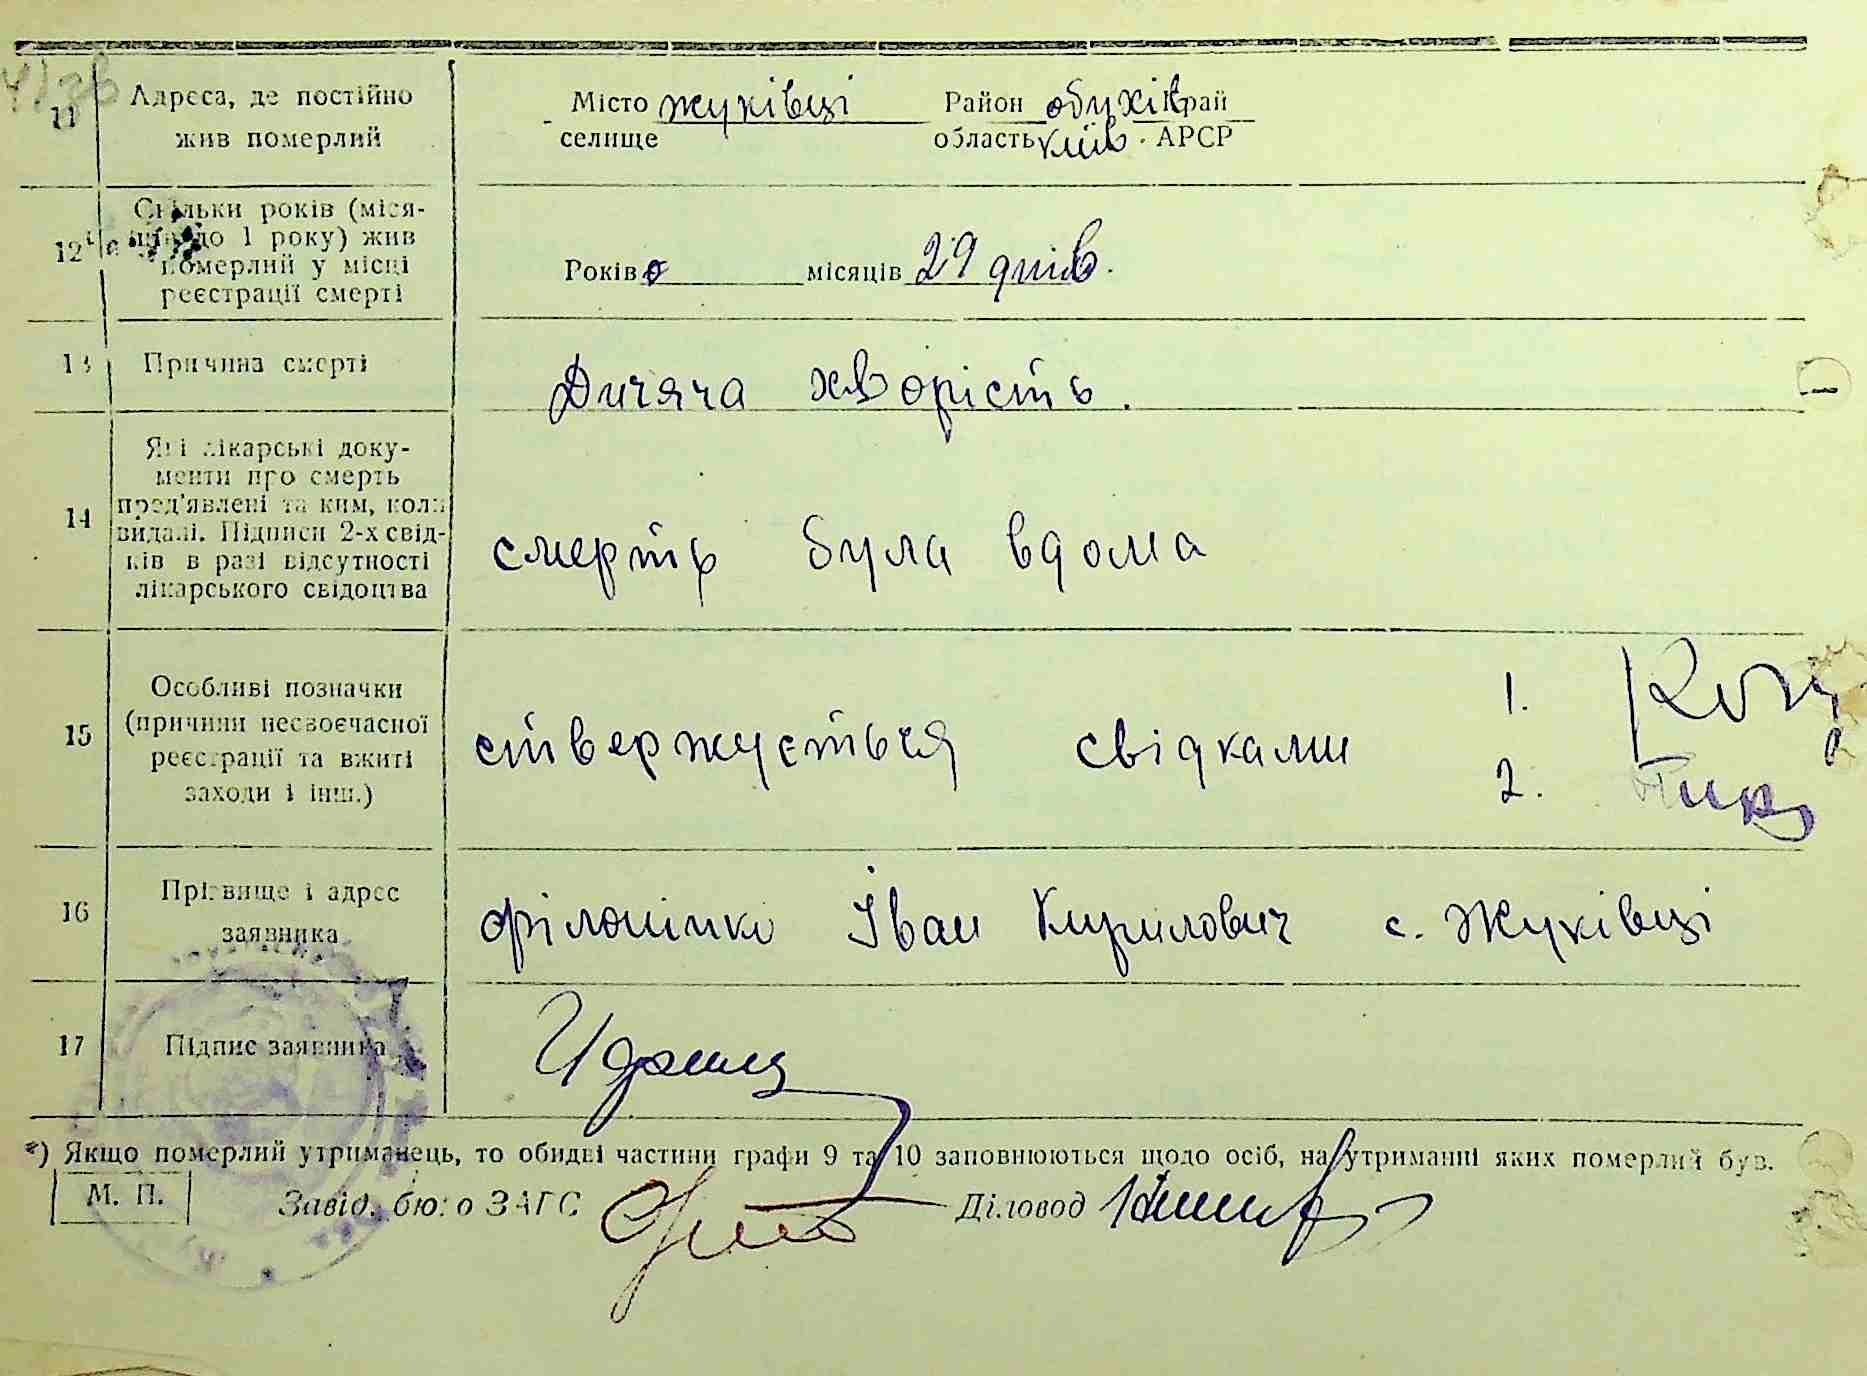 11 Адреса, де постійно жив померлий
Місто Жуківці Район Обухів Край
селище область Київ. АРСР
12 Скільки років (міся-
до 1 року) жив
померлий у місці
реєстрації смерті
Років 0 місяців 29 днів.
13 Причина смерті
Дитяча хворість.
14 Які лікарські доку-
менти про смерть
пред'явлені та ким, коли
видані. Підписи 2-х свід-
ків в разі відсутності
лікарського свідоцтва
смерть була вдома
15 Особливі позначки
(причини несвоєчасної
реєстрації та вжиті
заходи і інш.)
ствержується свідками 1.
2.
16 Прізвище і адрес
заявника
Іван Кирилович с. Жуківці
17 Підпис заявника
*) Якщо померлий утриманець, то обидві частини графи 9 та 10 заповнюються щодо осіб, на утриманні яких померлий був.
М. П. Завід. бюро ЗАГС Діловод